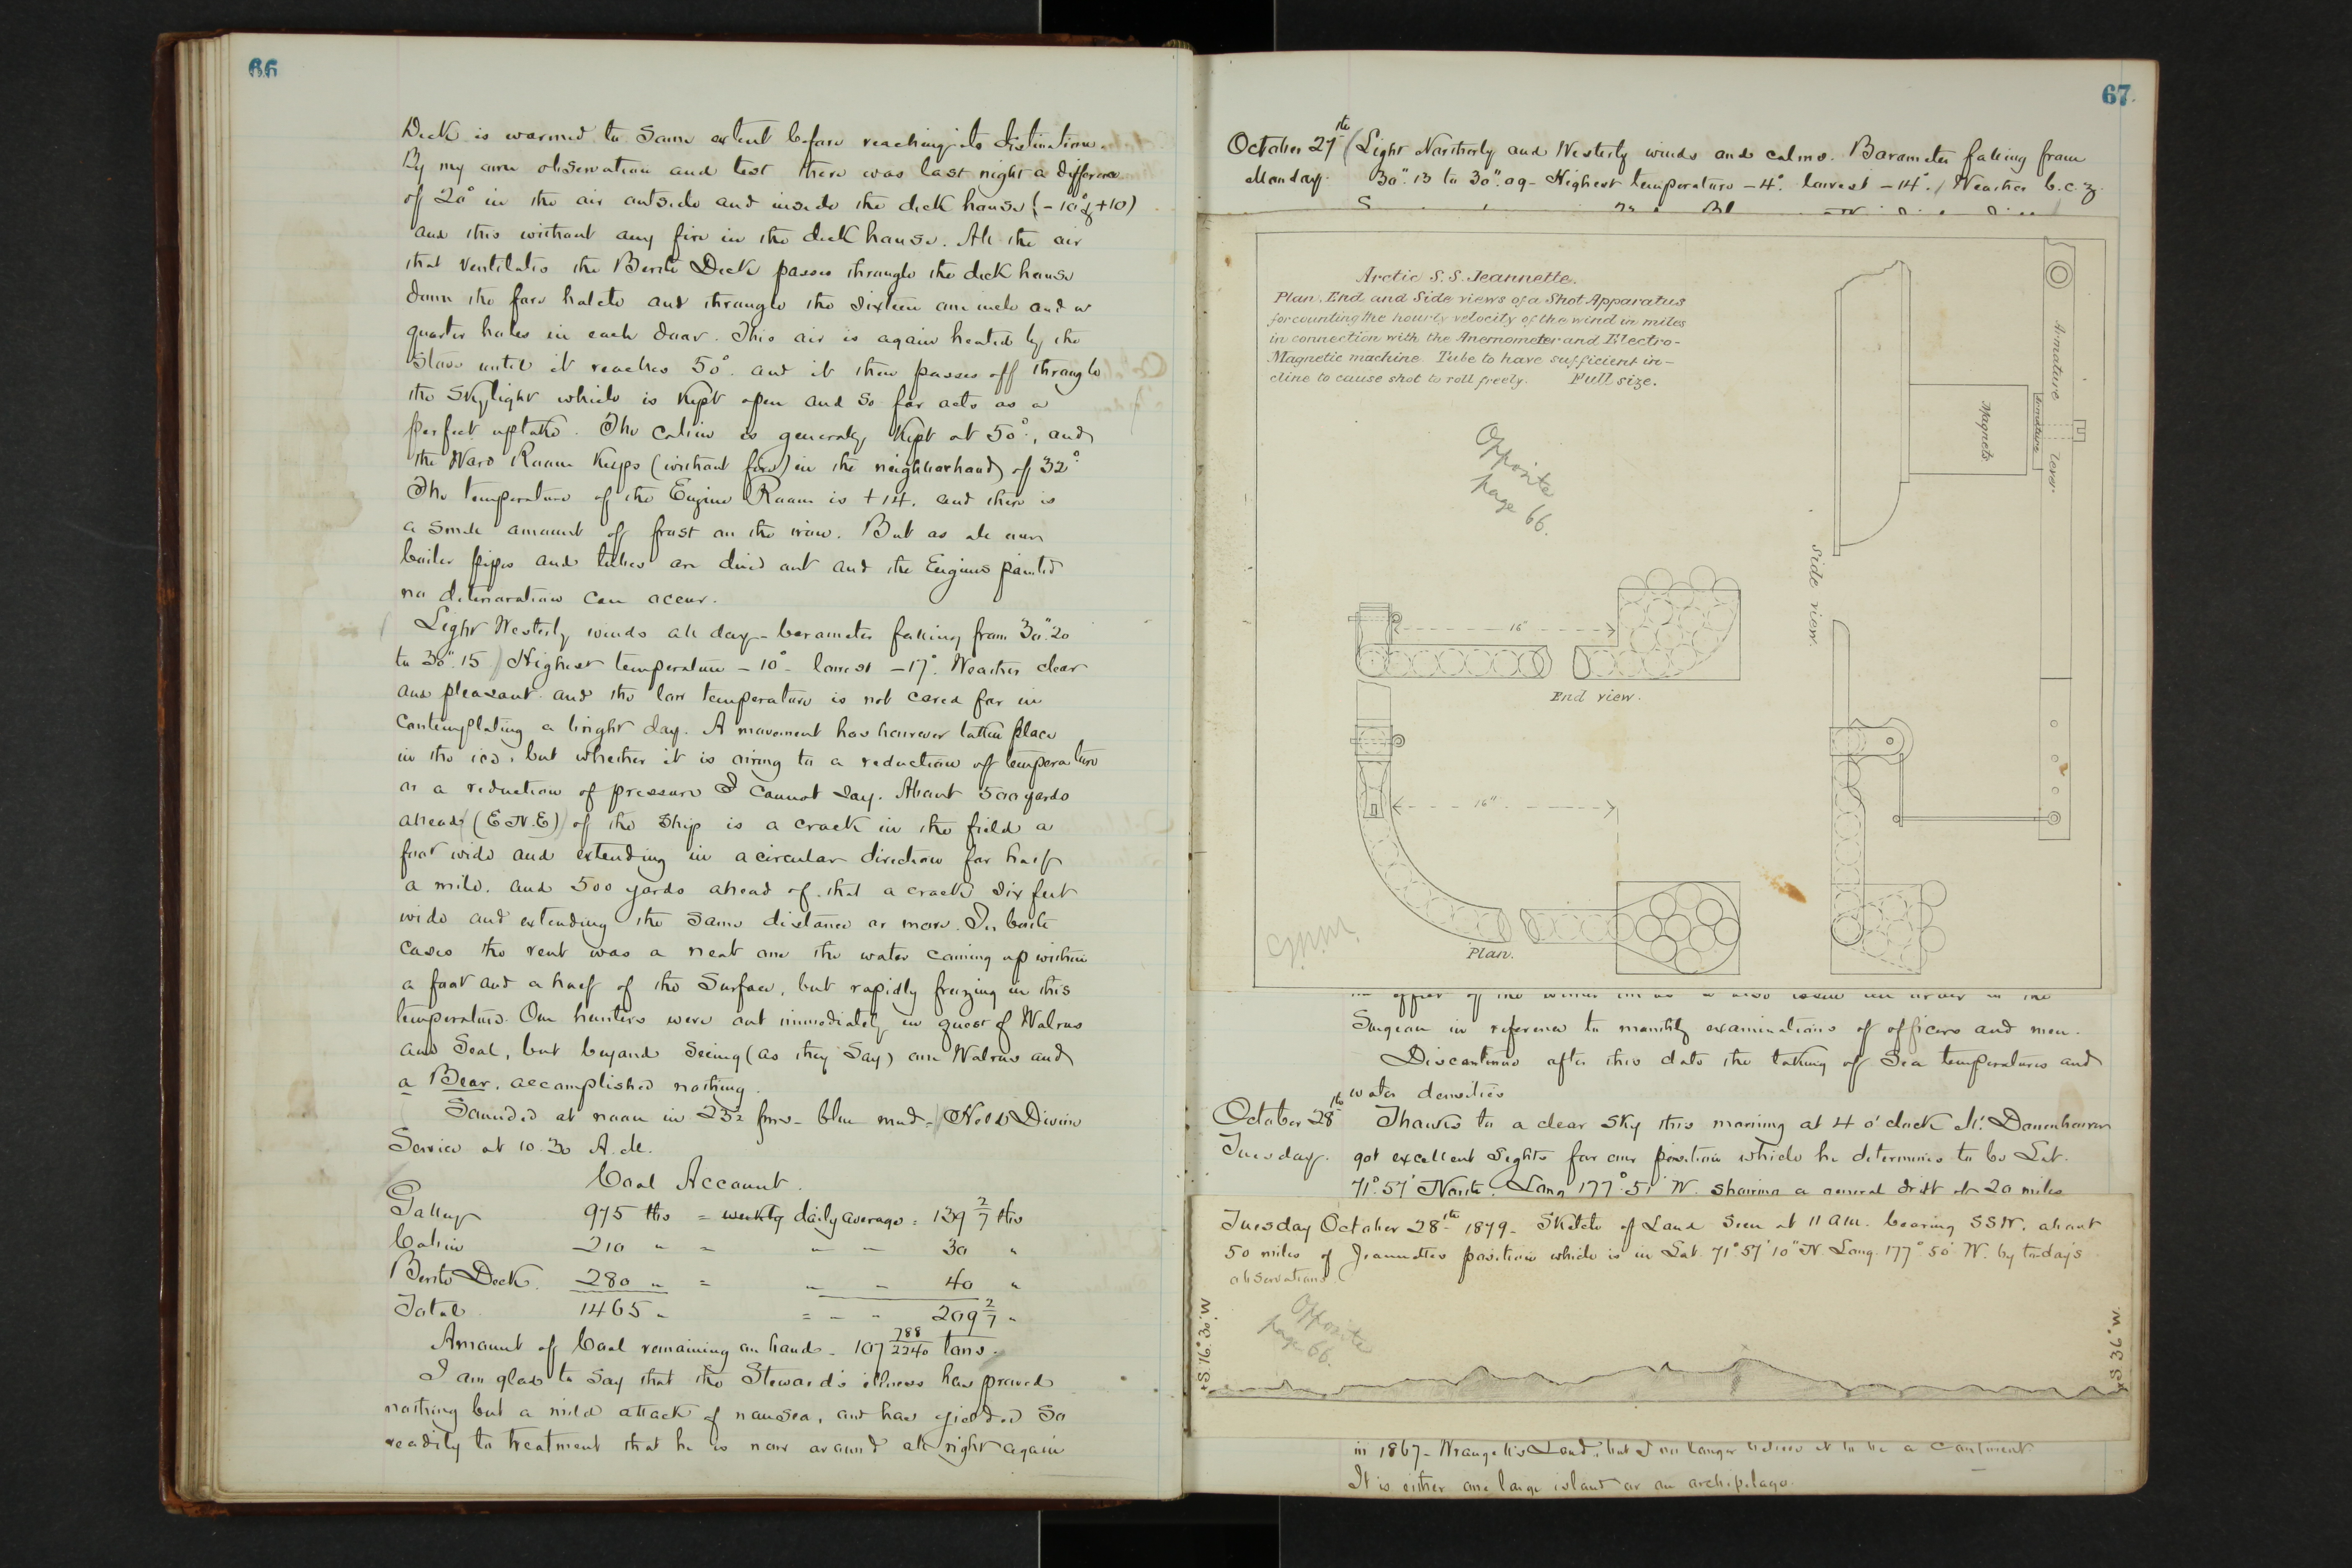 66
Deck is warmed to some extent before reaching its distination.
By my own observation and test there was last night a difference
of 20° in the air outside and inside the deck house (-10° & +10)
and this without any fire in the deck house. All the air
that ventilates the Berth Deck passes through the deck house
down the fore hatch and through the sixteen one inch and a
quarter holes in each door. This air is again heated by the
Stove until it reaches 50°. and it then passes off through
the skylight which is kept open and so far acts as a
perfect uptake. The cabin is generally kept at 50°, and
the Ward Room keeps (without fire) in the neighborhood of 32°
The temperature of the Engine Room is +14. and there is
a small amount of frost on the iron. But as all our
boiler pipes and tubes are dried out and the Engines painted
no deterioration can occur.
Light Westerly winds all day - barometer falling from 30".20
to 30".15 Highest temperature -10° - lowest -17°. Weather clear
and pleasant and the low temperature is not cared for in
contemplating a bright day. A movement has however taken place
in the ice, but whether it is owing to a reduction of temperature
or a reduction of pressure I cannot say. About 500 yards
ahead (E.N.E) of the ship is a crack in the field a
foot wide and extending in a circular direction for half
a mile. and 500 yards ahead of that a crack six feet
wide and extending the same distance or more. In both
cases the rent was a neat one the water coming up within
a foot and a half of the surface, but rapidly freezing in this
temperature. Our hunters were out immediately in quest of Walrus
and Seal, but beyond seeing (as they say) one Walrus and
a Bear, accomplished nothing.
Sounded at noon in 23½ fms - blue mud - Held Divine
Service at 10.30 A.M.
Coal Account.
Galley 975 lbs = weekly daily average = 139 2/7 lbs
Cabin 210 " = " - 30 "
Berth Deck. 280 " = " - 40 "
Total 1465 " = - " 209 2/7 "
Amount of Coal remaining on hand - 107 788/2240 tons.
I am glad to say that the Steward's illness has proved
nothing but a mild attack of nausea, and has yielded so
readily to treatment that he is now around all right again
67
October 27th (Light Northerly and Westerly winds and calms. Barometer falling from
Monday. 30".13 to 30".09 - Highest temperature -4°. lowest -14°. Weather b.c.z.
Arctic S.S. Jeannette.
Plan. End and Side views of a Shot Apparatus
for counting the hourly velocity of the wind in miles
in connection with the Anemometer and Electro-
Magnetic machine. Tube to have sufficient in-
cline to cause shot to roll freely. Full size.
Opposite
page 66.
Armature lever
Armature
Magnets
Side view.
16"
End view.
16"
Plan.
Surgeon in reference to monthly examinations of officers and men.
Discontinue after this date the taking of Sea temperatures and
water densities
October 28th Thanks to a clear sky this morning at 4 o'clock Mr. Danenhower
Tuesday. got excellent sights for our position which he determines to be Lat.
71° 57' North. Long 177° 51' W. showing a general drift of 20 miles
Tuesday October 28th 1879 - Sketch of Land seen at 11 AM. bearing SSW. about
50 miles of Jeannettes position which is in Lat 71° 57' 10" N. Long. 177° 50' W. by todays
observations.
Opposite
page 66.
S. 16° 30' W
S 36° W.
in 1867 - Wrangell's Land, but I no longer believe it to be a continent
It is either one large island or an archipelago.